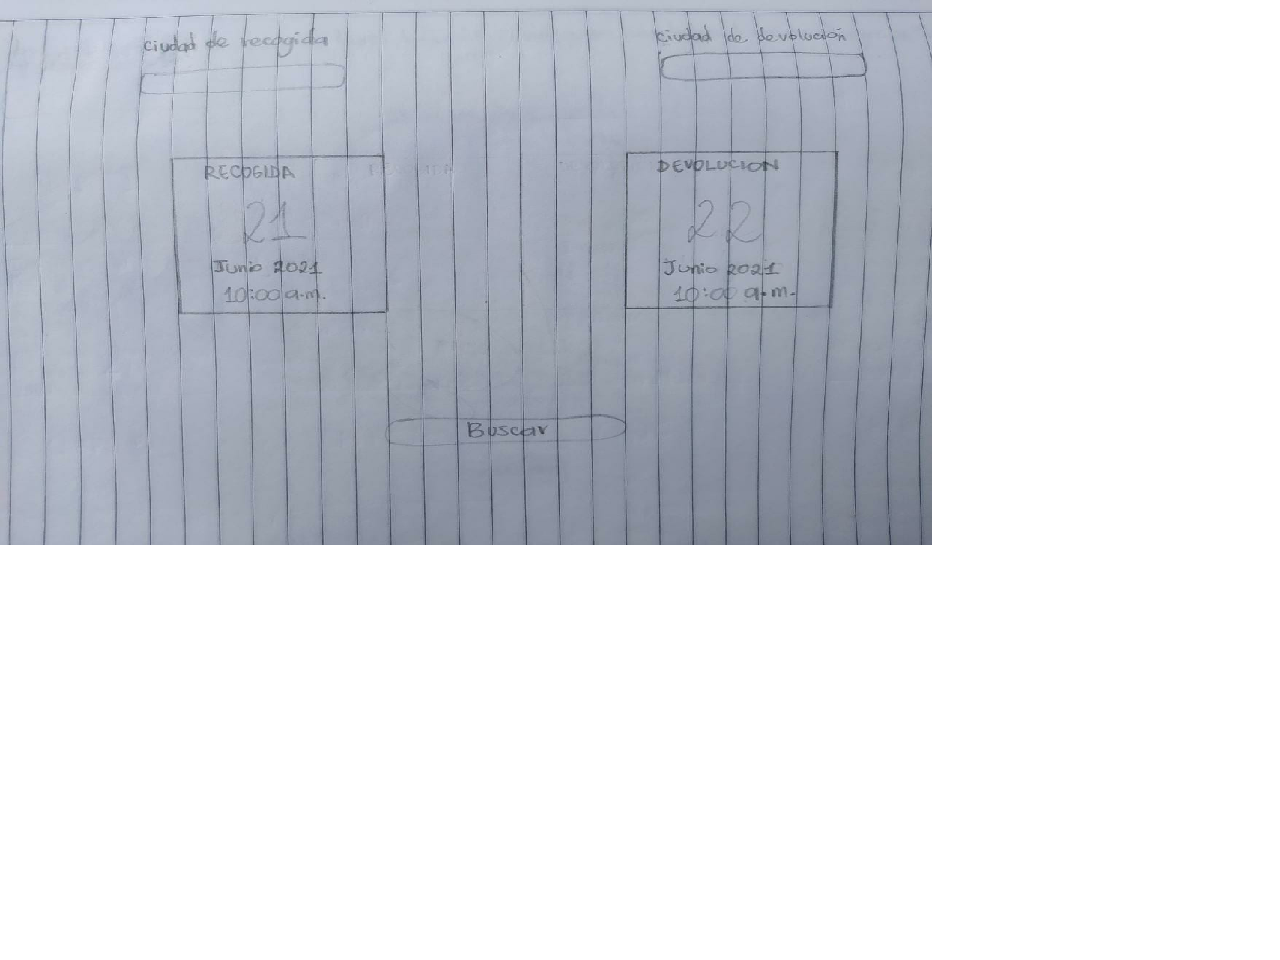 ciudad de recogida
ciudad de devolución
RECOGIDA
21
Junio 2021
10:00 a.m.
DEVOLUCION
22
Junio 2021
10:00 a.m.
Buscar